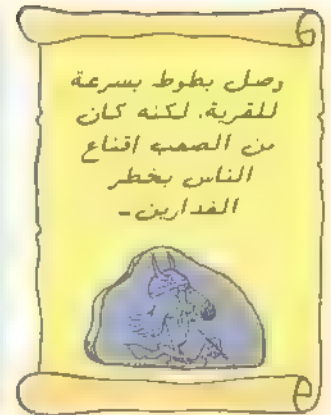 وصل بطوط بسرعة
للقرية. لكنه كان
من الصعب اقناع
الناس بخطر
الغدارين -